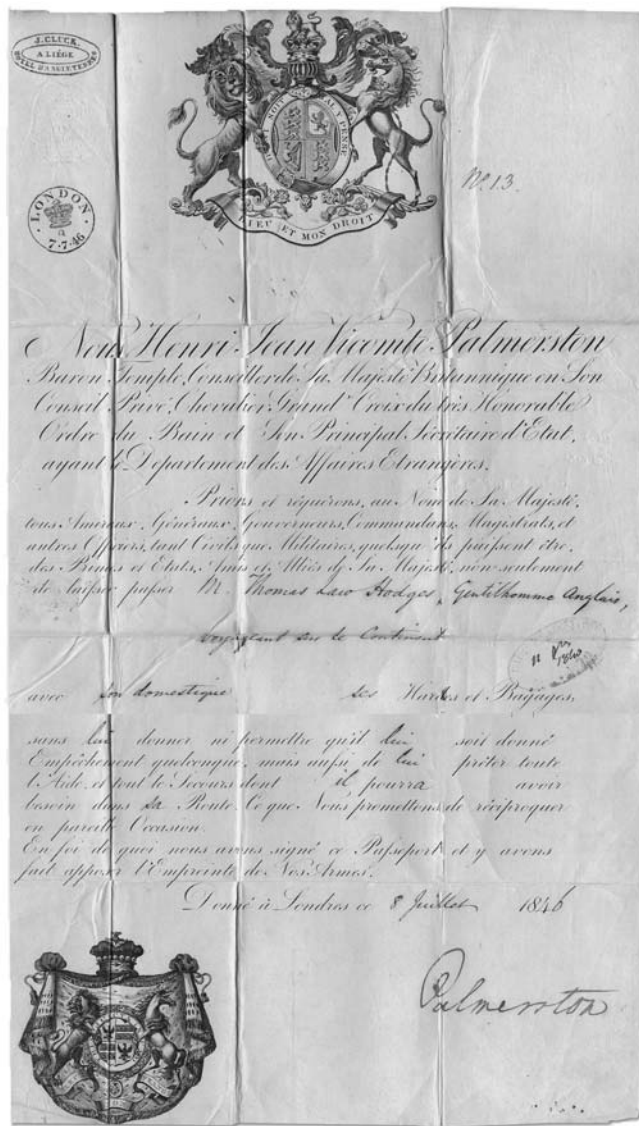 J. CLUCK.
A LIÉGE
HOTEL D'ANGLETERRE
HONI SOIT QUI MAL Y PENSE
DIEU ET MON DROIT
No. 13.
LONDON
7.7.46
Nous Henri Jean Vicomte Palmerston
Baron Temple, Conseiller de Sa Majesté Britannique en Son
Conseil Privé, Chevalier Grand' Croix du très Honorable
Ordre du Bain et Son Principal Sécrétaire d'Etat,
ayant le Departement des Affaires Etrangères.
Prions et réquérons, au Nom de Sa Majesté,
tous Amiraux, Généraux, Gouverneurs, Commandans, Magistrats, et
autres Officiers, tant Civils que Militaires, quelsqu'ils puissent être,
des Princes et Etats, Amis et Alliés de Sa Majesté, non seulement
de laisser passer M. Thomas Law Hodges, Gentilhomme Anglais,
voyageant sur le Continent
avec son domestique ses Hardes et Bagages,
sans lui donner ni permettre qu'il lui soit donné
Empêchement quelconque, mais aussi de lui prêter toute
l'Aide, et tout le Secours dont il pourra avoir
besoin dans sa Route. Ce que Nous promettons de réciproquer
en pareille Occasion.
En foi de quoi nous avons signé ce Passeport et y avons
fait apposer l'Empreinte de Nos Armes.
Donné à Londres ce 8 Juillet 1846
Palmerston